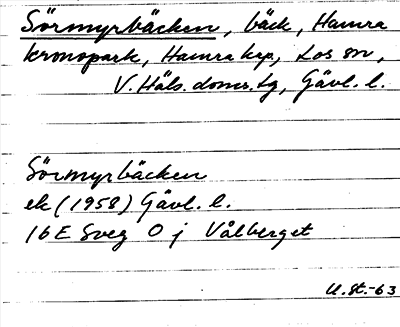 Sörmyrbäcken, bäck, Hamra
kronopark, Hamra kp, Los sn,
V. Häls. doms. tg, Gävl. l.
Sörmyrbäcken
ek (1958) Gävl. l.
16E Sveg 0 j Vålberget
U.St.-63